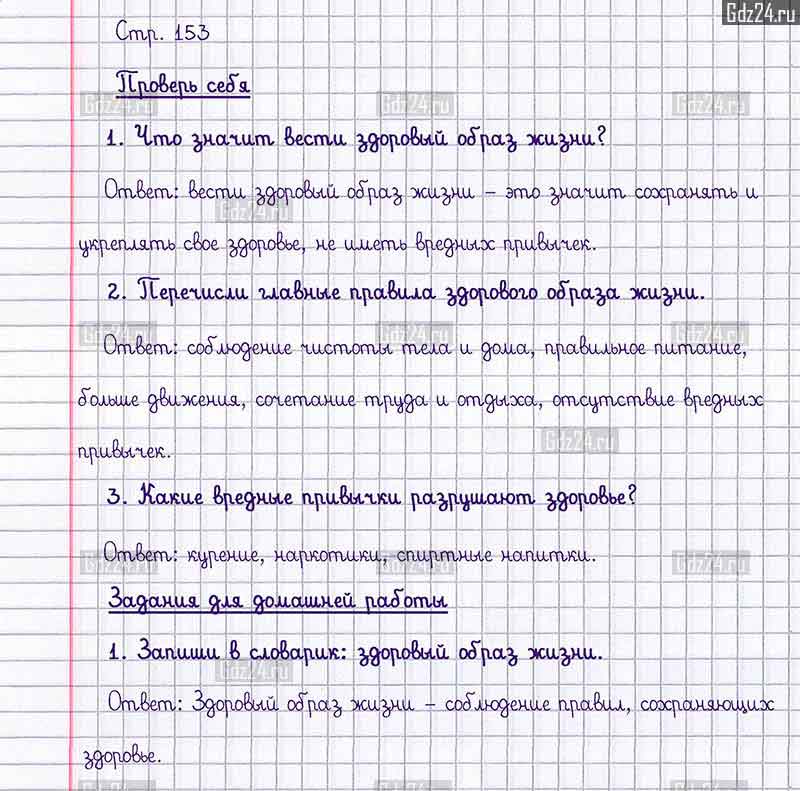 Gdz24.ru
Стр. 153
Проверь себя
1. Что значит вести здоровый образ жизни?
Ответ: вести здоровый образ жизни – это значит сохранять и
укреплять свое здоровье, не иметь вредных привычек.
2. Перечисли главные правила здорового образа жизни.
Ответ: соблюдение чистоты тела и дома, правильное питание,
больше движения, сочетание труда и отдыха, отсутствие вредных
привычек.
3. Какие вредные привычки разрушают здоровье?
Ответ: курение, наркотики, спиртные напитки.
Задания для домашней работы
1. Запиши в словарик: здоровый образ жизни.
Ответ: Здоровый образ жизни – соблюдение правил, сохраняющих
здоровье.